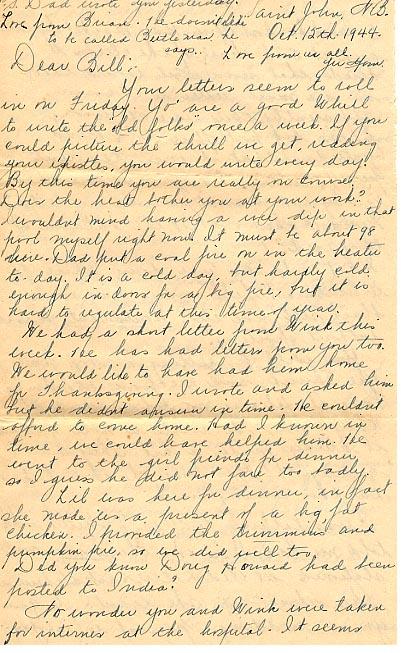 P.S. Dad wrote you yesterday.
Love from Brian. He doesn't like
to be called Butleman he
says..
Saint John, N.B.
Oct. 15th. 1944.
Love from us all
Yr Mom.
Dear Bill:
Your letters seem to roll
in on Friday. Yo' are a good
to write the "old folks" once a week. If you
could picture the thrill we get, reading
your epistles, you would write every day.
By this time you are really on course.
Does the heat bother you at your work?
I wouldn't mind having a wee dip in that
pool myself right now. It must be about 98
there. Dad put a coal fire on in the heater
to-day. It is a cold day, but hardly cold
enough in-doors for a big fire, but it is
hard to regulate at this time of year.
We had a short letter from Wink this
week. He has had letters from you too.
We would like to have had him home
for Thanksgiving. I wrote and asked him
but he didn't answer in time. He couldn't
afford to come home. Had I known in
time, we could have helped him. He
went to the girl friends for dinner,
so I guess he did not fare too badly.
Lib was here for dinner, in fact
she made us a present of a big fat
chicken. I provided the trimmins and
pumpkin pie, so we did well too.
Did you know Doug Howard had been
posted to India?
No wonder you and Wink were taken
for internes at the hospital. It seems